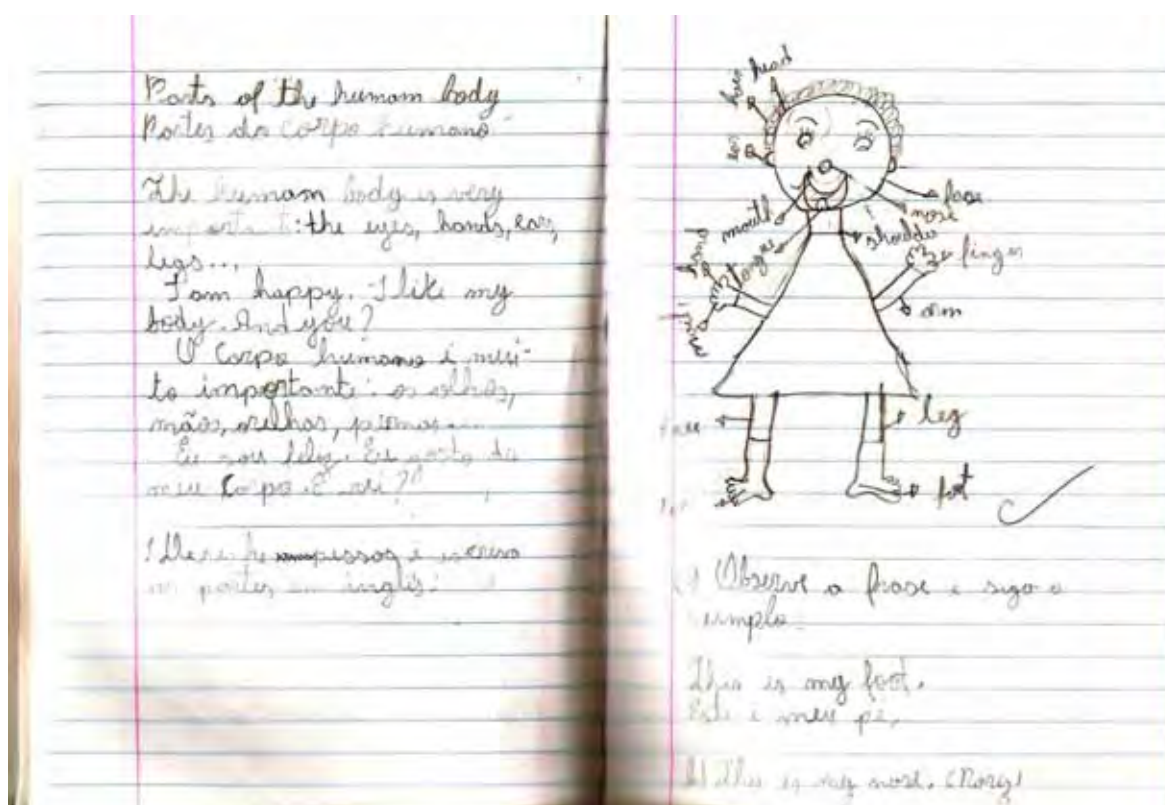 Parts of the humam body
Partes do corpo humano
The humam body is very
important: the eyes, hands, ears,
legs...
I am happy. I like my
body. And you?
O corpo humano é mui-
to importante: os olhos,
mãos, orelhas, pernas...
Eu sou feliz. Eu gosto do
meu corpo. E
pessoa e escreva
as partes em inglês:
head
hair
ear
face
nose
mouth
shoulder
tongue
hand
finger
arm
leg
foot
Observe a frase e siga o
This is my foot.
Este é meu pé.
this is my nose. (Nariz)